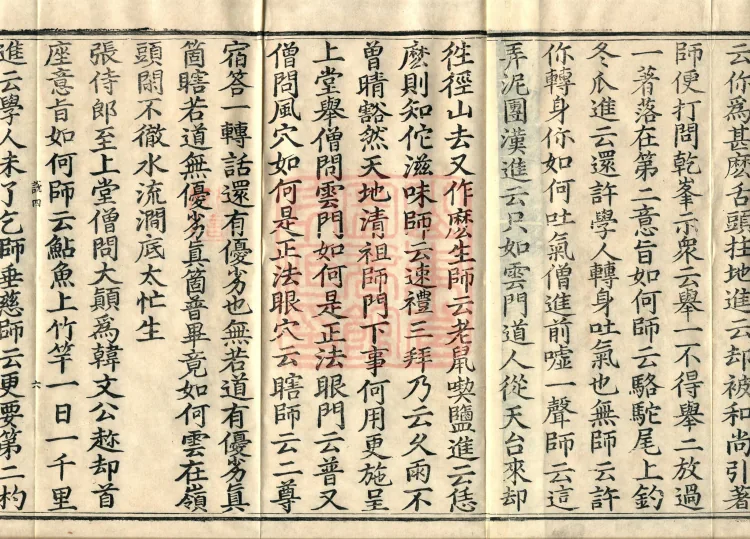 云你為甚麽舌頭拄地進云却被和尚引著
師便打問乾峯示衆云舉一不得舉二放過
一著落在第二意旨如何師云駱駝尾上釣
冬瓜進云還許學人轉身吐氣也無師云許
你轉身你如何吐氣僧進前噓一聲師云這
弄泥團漢進云只如雲門道人從天台來却
徃徑山去又作麽生師云老鼠喫鹽進云恁
麽則知佗滋味師云速禮三拜乃云久雨不
曾晴豁然天地清祖師門下事何用更施呈
上堂舉僧問雲門如何是正法眼門云普又
僧問風穴如何是正法眼穴云瞎師云二尊
宿答一轉話還有優劣也無若道有優劣真
箇瞎若道無優劣真箇普畢竟如何雲在嶺
頭閑不徹水流澗底太忙生
張侍郎至上堂僧問大顛為韓文公趂却首
座意旨如何師云鮎魚上竹竿一日一千里
六
進云學人未了乞師垂慈師云更要第二杓